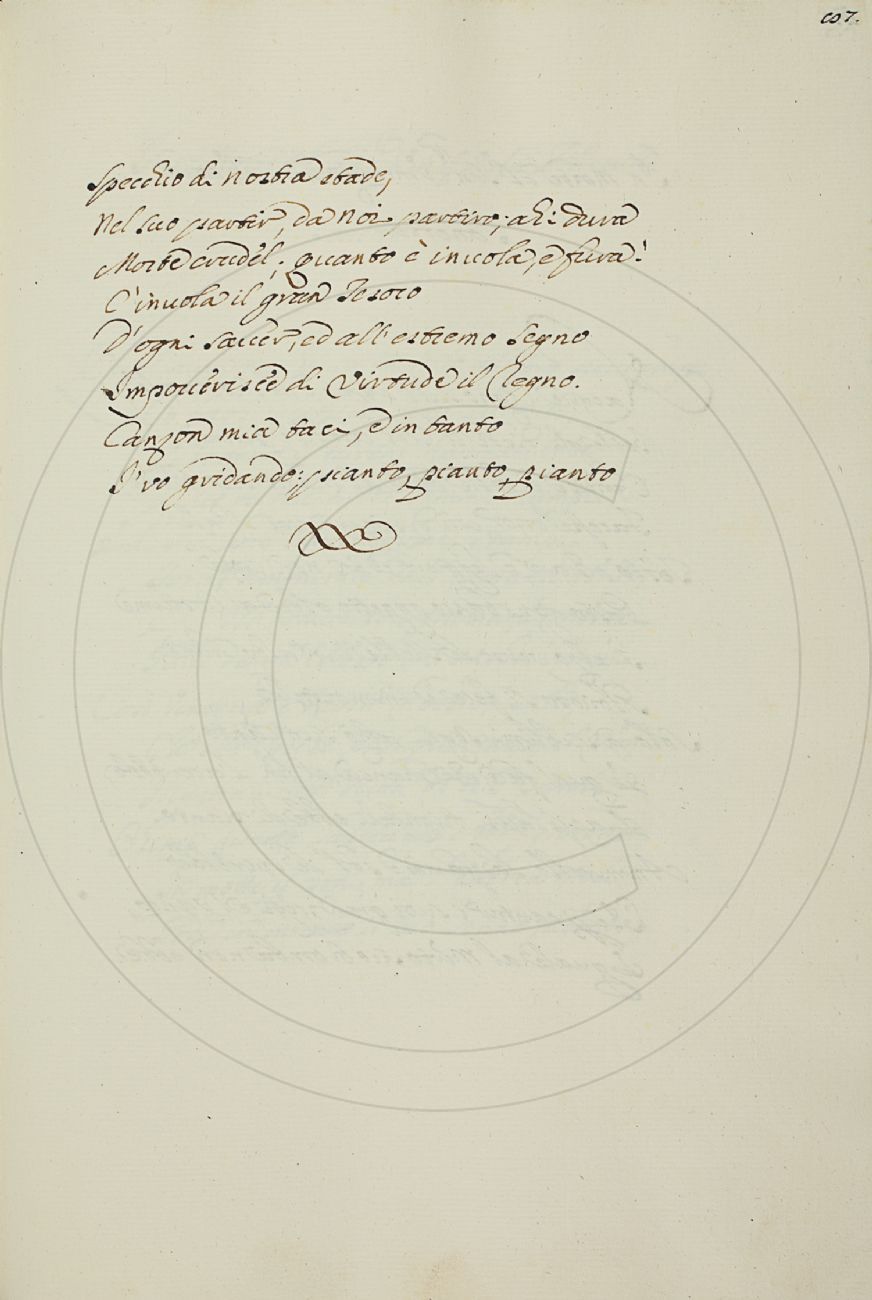 107.
Specchio di nostra etade,
Nel suo partir, da noi partiro; ahi dura
Morte crudel; quanto c'invola, e fura!
C'invola il gran Tesoro
D'ogni saver, ed all'estremo segno
Impoverisce di Virtude il Regno.
Canzon mia taci, e in tanto
I' vo gridando; pianto, pianto, pianto